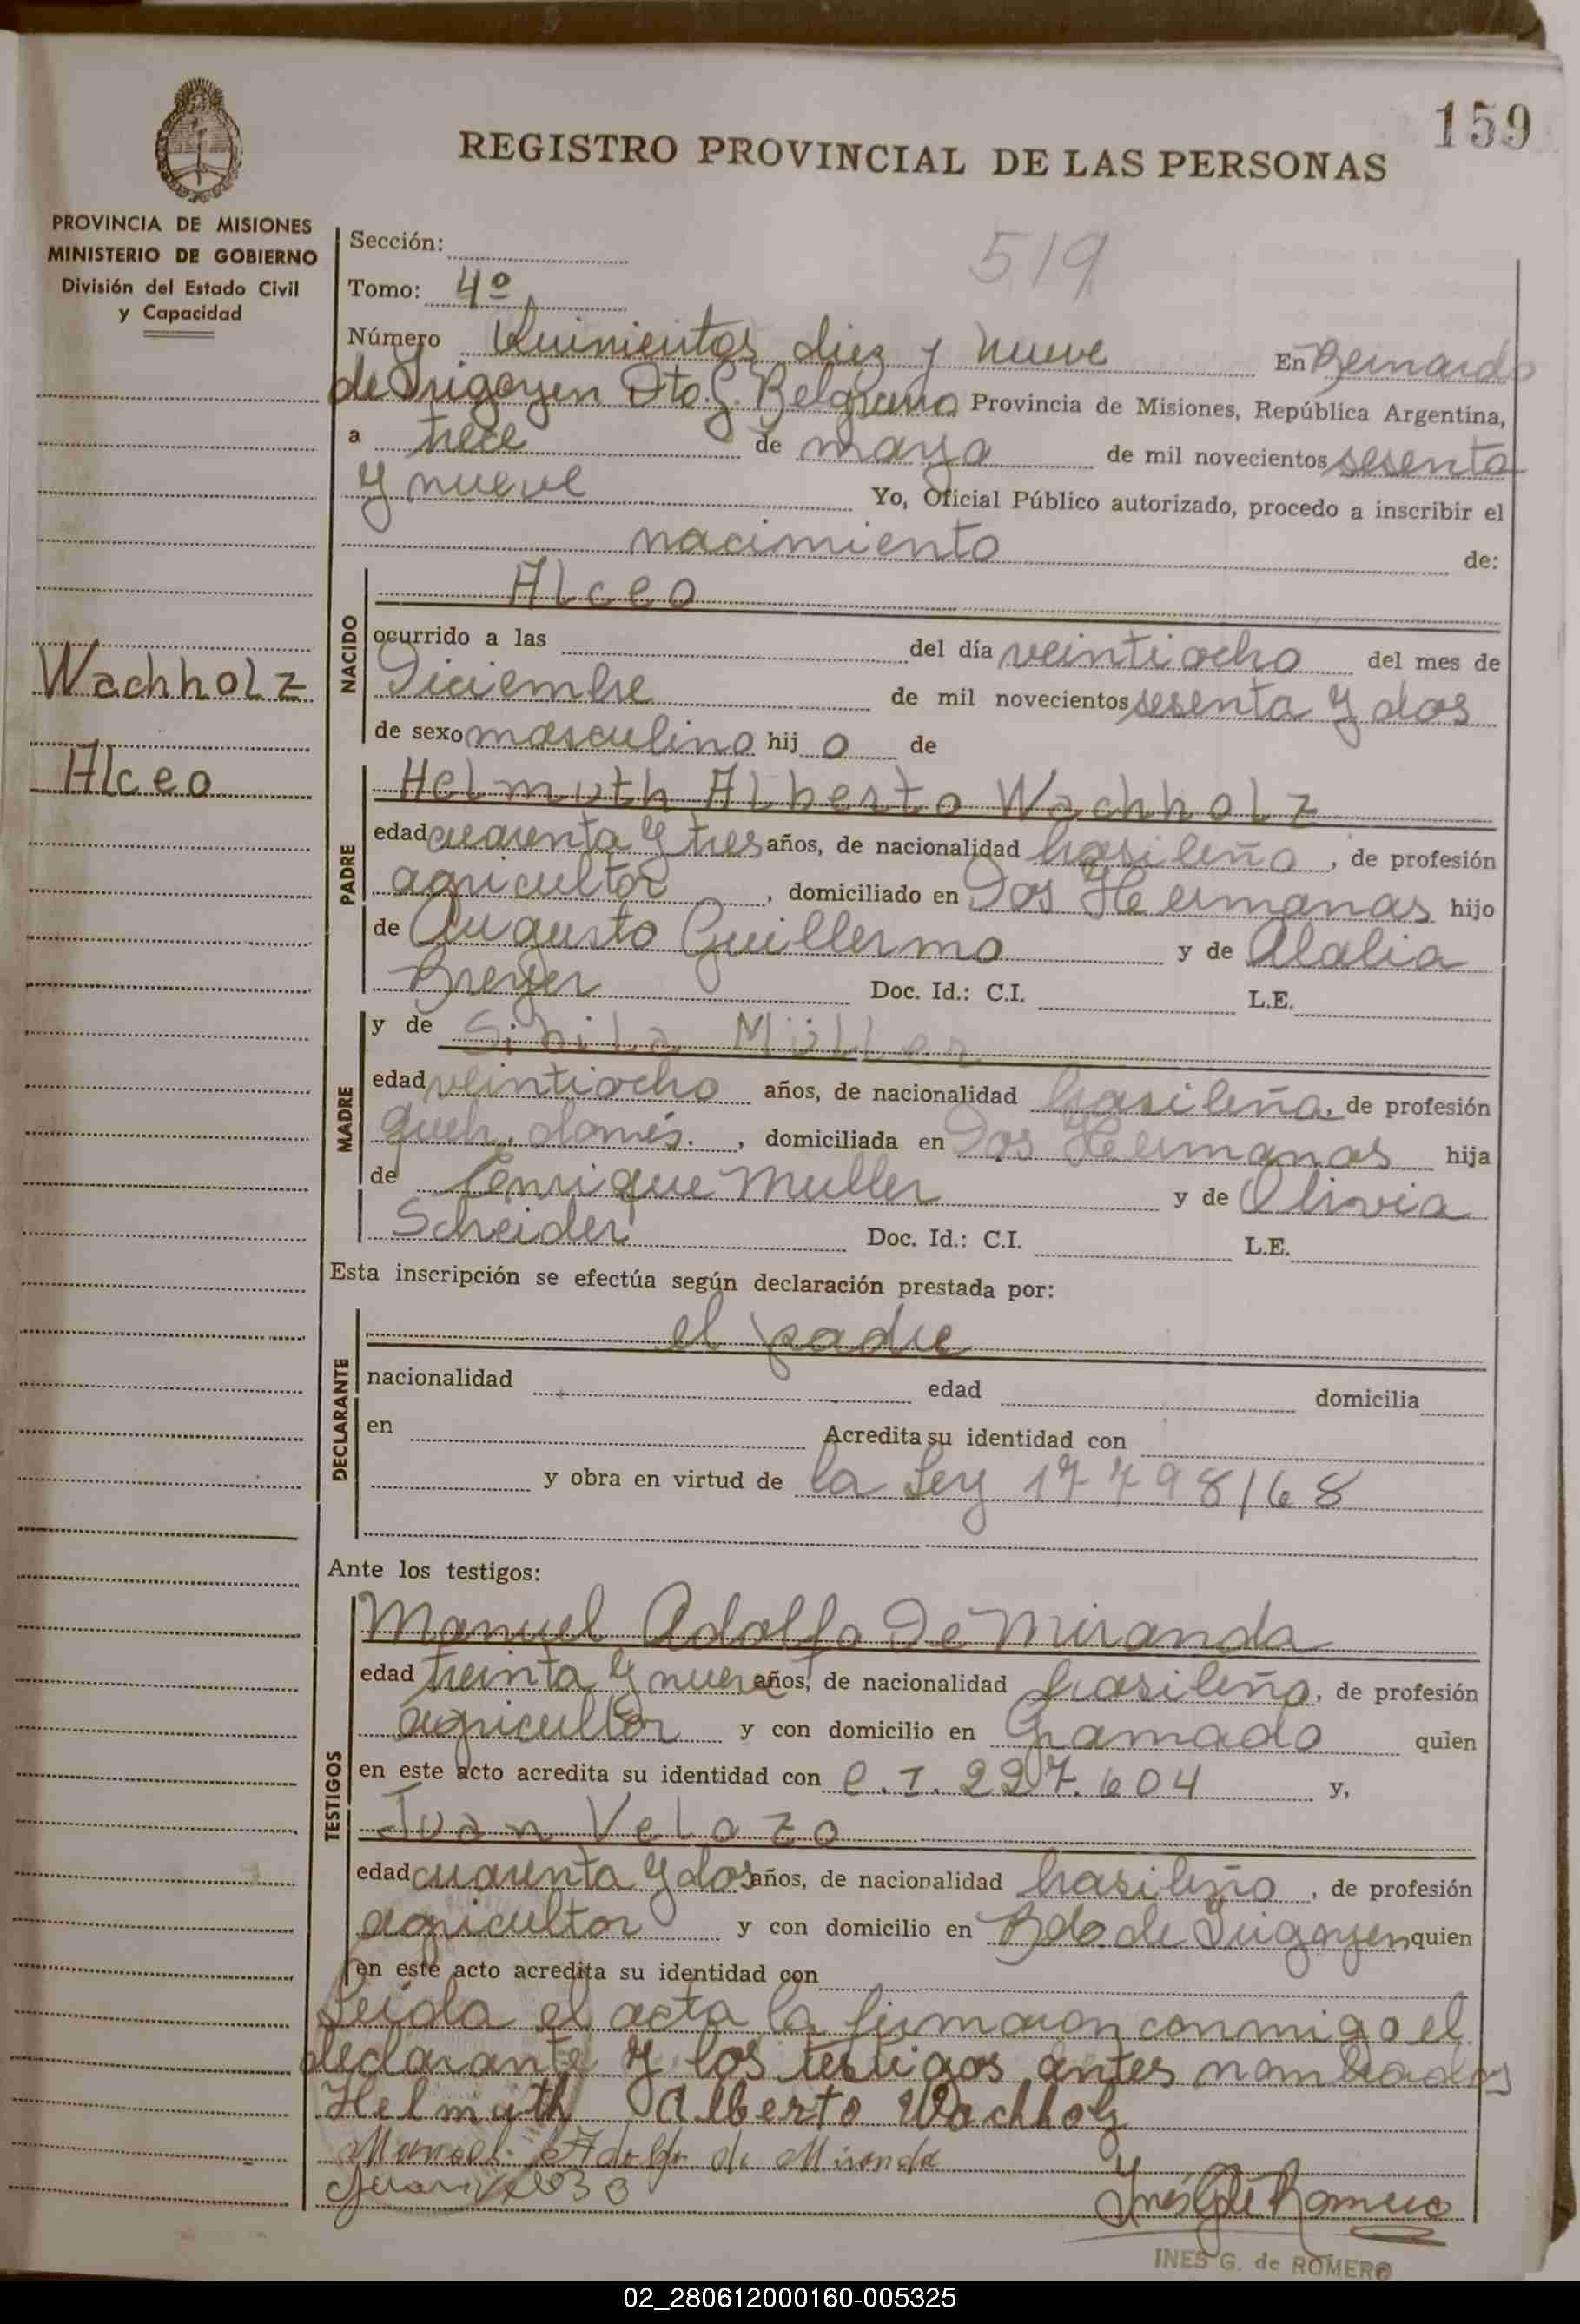 159
REGISTRO PROVINCIAL DE LAS PERSONAS
PROVINCIA DE MISIONES
MINISTERIO DE GOBIERNO
División del Estado Civil
y Capacidad
Wachholz
Alceo
Sección:
519
Tomo: 4º
Número Quinientos diez y nueve En Bernardo
de Irigoyen Dto. G. Belgrano Provincia de Misiones, República Argentina,
a trece de mayo de mil novecientos sesenta
y nueve Yo, Oficial Público autorizado, procedo a inscribir el
nacimiento de:
NACIDO
Alceo
ocurrido a las del día veintiocho del mes de
Diciembre de mil novecientos sesenta y dos
de sexo masculino hij o de
PADRE
Helmuth Alberto Wachholz
edad cuarenta y tres años, de nacionalidad brasileño, de profesión
agricultor, domiciliado en Dos Hermanas hijo
de Augusto Guillermo y de Alalia
Breyer Doc. Id.: C.I. L.E.
MADRE
y de Sibila Müller
edad veintiocho años, de nacionalidad brasileña, de profesión
queh. domés., domiciliada en Dos Hermanas hija
de Enrique Muller y de Olivia
Scheider Doc. Id.: C.I. L.E.
Esta inscripción se efectúa según declaración prestada por:
DECLARANTE
el padre
nacionalidad edad domicilia
en Acredita su identidad con
y obra en virtud de la Ley 17798/68
Ante los testigos:
TESTIGOS
Manuel Adolfo De Miranda
edad treinta y nueve años, de nacionalidad brasileño, de profesión
agricultor y con domicilio en Gramado quien
en este acto acredita su identidad con C.I. 227.604 y,
Juan Velozo
edad cuarenta y dos años, de nacionalidad brasileño, de profesión
agricultor y con domicilio en Bdo. de Irigoyen quien
en este acto acredita su identidad con
Leída el acta la firmaron conmigo el
declarante y los testigos antes nombrados
Helmuth Alberto Wachholz
Manoel Adolfo de Miranda
INES G. de ROMERO
02_280612000160-005325